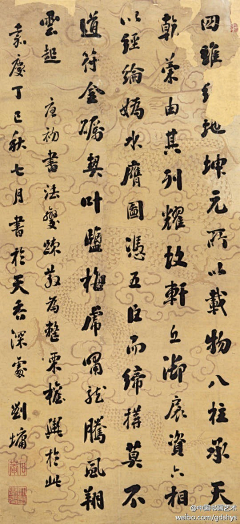 四維紐地坤元所以載物八柱承天
乾策由其列耀故軒丘御扆資六相
以經綸嬀水膺圖憑五臣而締構莫不
道符金礪契叶鹽梅虎嘯龍騰風翔
雲起 唐初書法變疎散為整栗權輿於此
嘉慶丁巳秋七月書於天香深處劉墉